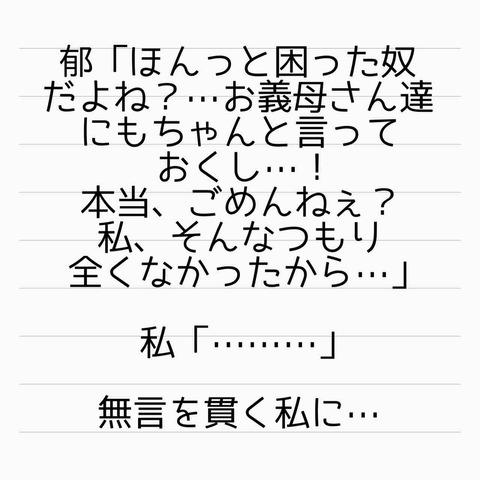 郁「ほんっと困った奴
だよね？…お義母さん達
にもちゃんと言って
おくし…！
本当、ごめんねぇ？
私、そんなつもり
全くなかったから…」
私「………」
無言を貫く私に…